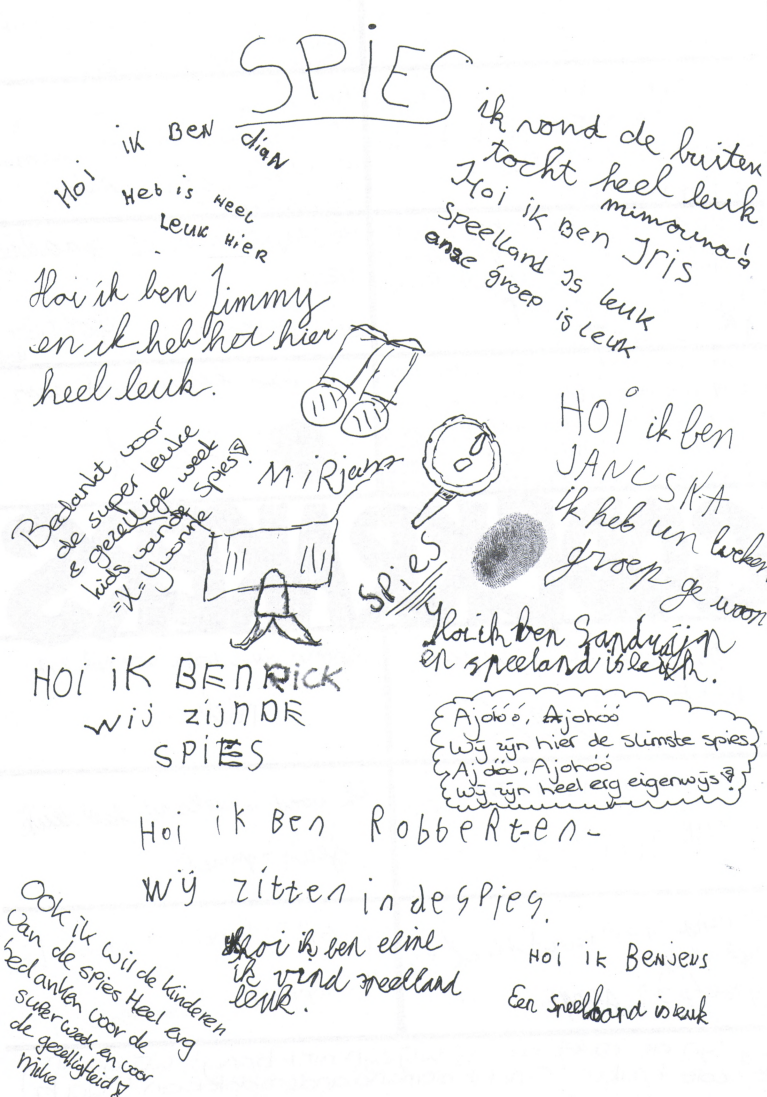 SPIES
Hoi ik BEN dian
Heb is heel
LEUK HIER
ik vond de buiten
tocht heel leuk
mimouna!
Hoi ik BEN Iris
Speelland Is leuk
onze groep is leuk
Hoi ik ben Jimmy
en ik heb het hier
heel leuk.
Bedankt voor
de super leuke
& gezellige week
kids van de spies!
=X= Yvonne
MiRjam
SPiES
HOi ik ben
JANCSKA
ik heb un
groep ge woon
Hoi ik ben Sandwijn
en speeland is leuk.
HOI iK BEN RiCK
Wij zijn DE
SPIES
Ajohóó, Ajohóó
Wij zijn hier de slimste spies
Ajóóó, Ajohóó
Wij zijn heel erg eigenwijs!
Hoi ik Ben Robbert-en-
Wij zitten in de spies.
Ook ik wil de kinderen
van de spies Heel erg
bedanken voor de
super week en voor
de gezelligheid!
Mike
Hoi ik ben eline
ik vind speelland
leuk.
HOI ik BEN Jens
Een Speelland is leuk